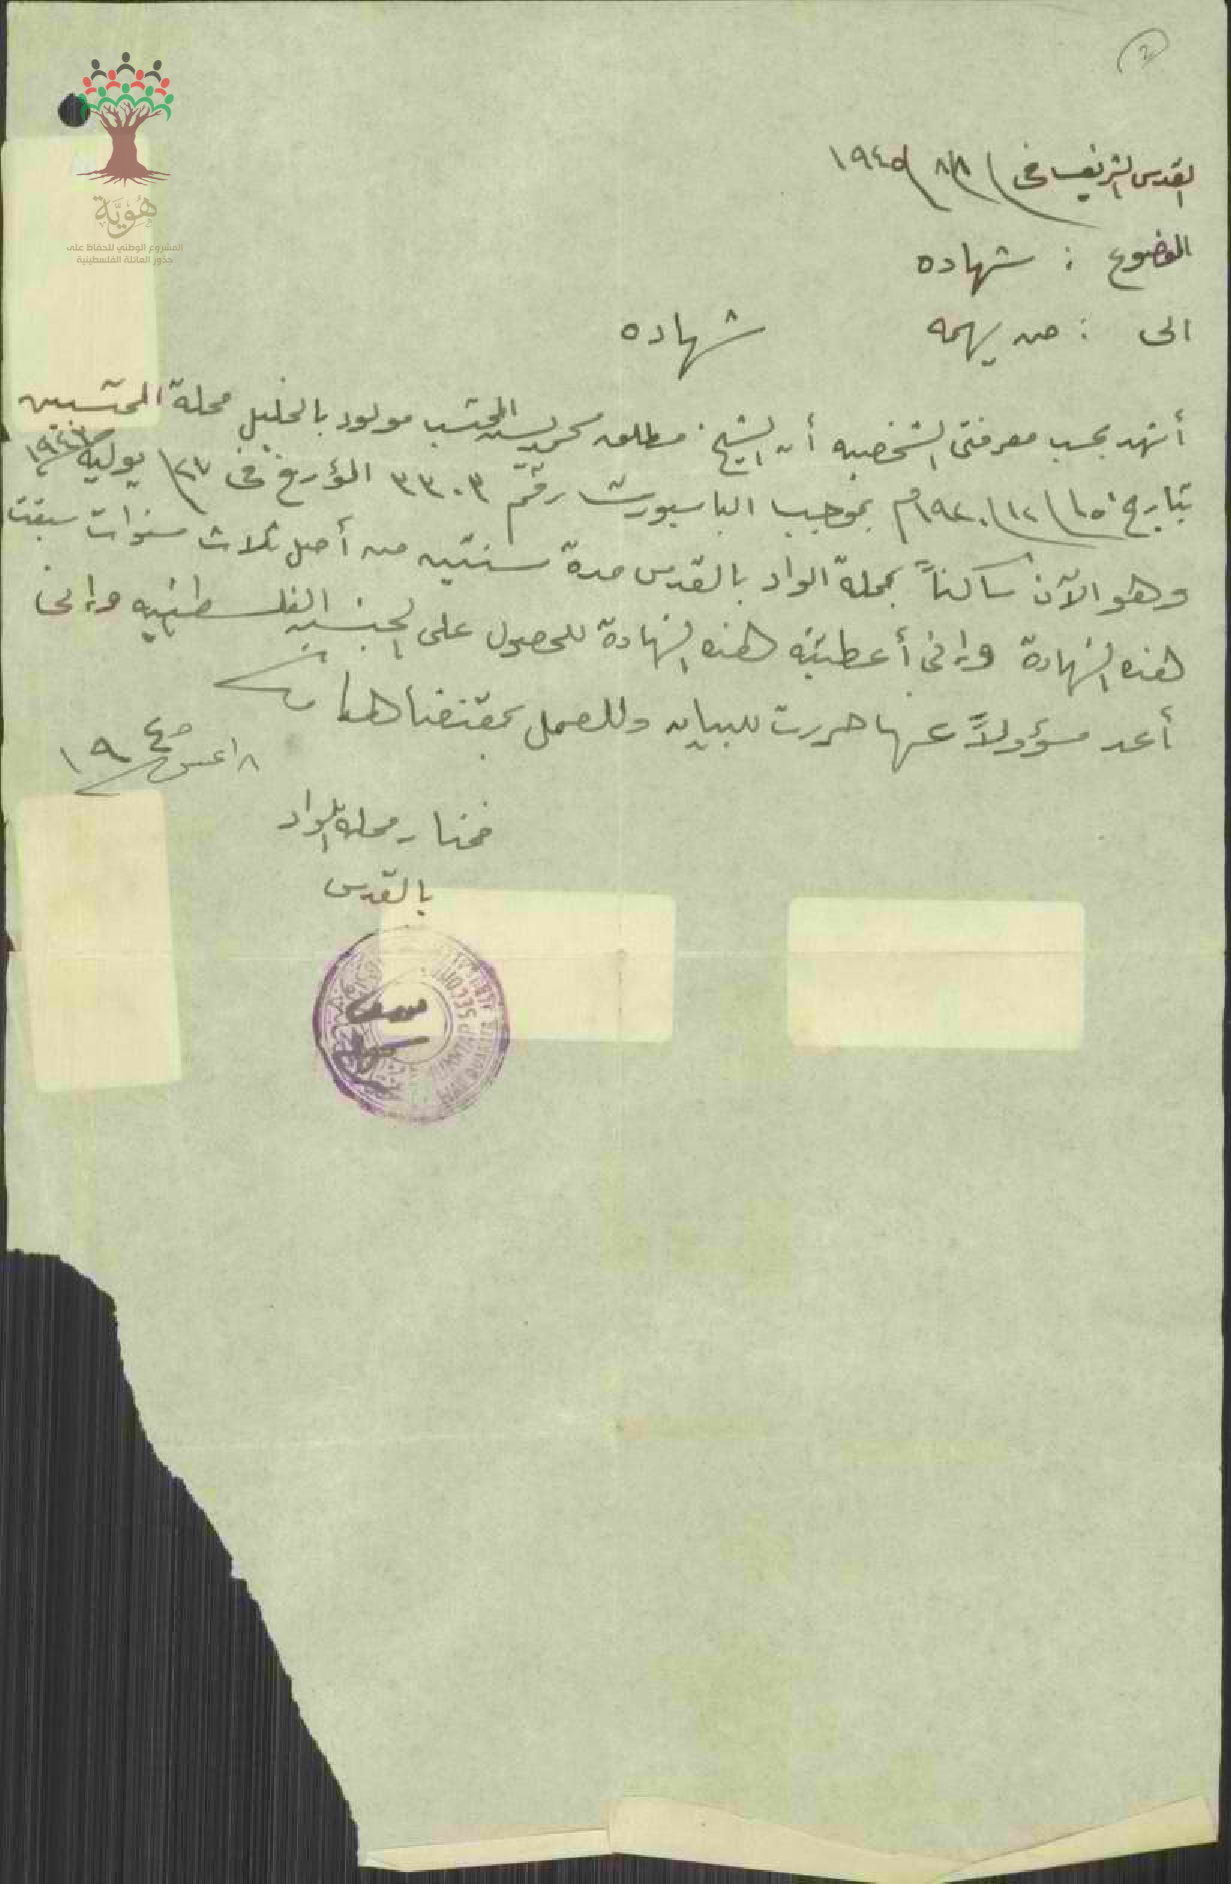 2
القدس الشريف في ٨/٨/١٩٤٥
الموضوع : شهاده
الى : من يهمه
شهاده
أشهد بحسب معرفتى الشخصيه أن الشيخ مطلق محمد المحتسب مولود بالخليل محلة المحتسبين
بتاريخ ١٥/١٢/١٩٢٠م بموجب الباسبورت رقم ٣٣٠٣ المؤرخ في ٢٧ يوليه
وهو الآن ساكناً بمحلة الواد بالقدس مدة سنتين من أصل ثلاث سنوات سبقت
هذه الشهادة وإنى أعطيته هذه الشهادة للحصول على الجنسيه الفلسطينيه وإنى
أعد مسؤولاً عنها حررت للبيان وللعمل بمقتضاها
٨ اغسطس ١٩٤٥
مختار محلة الواد
بالقدس
هُوِيَّة
المشروع الوطني للحفاظ على
جذور العائلة الفلسطينية